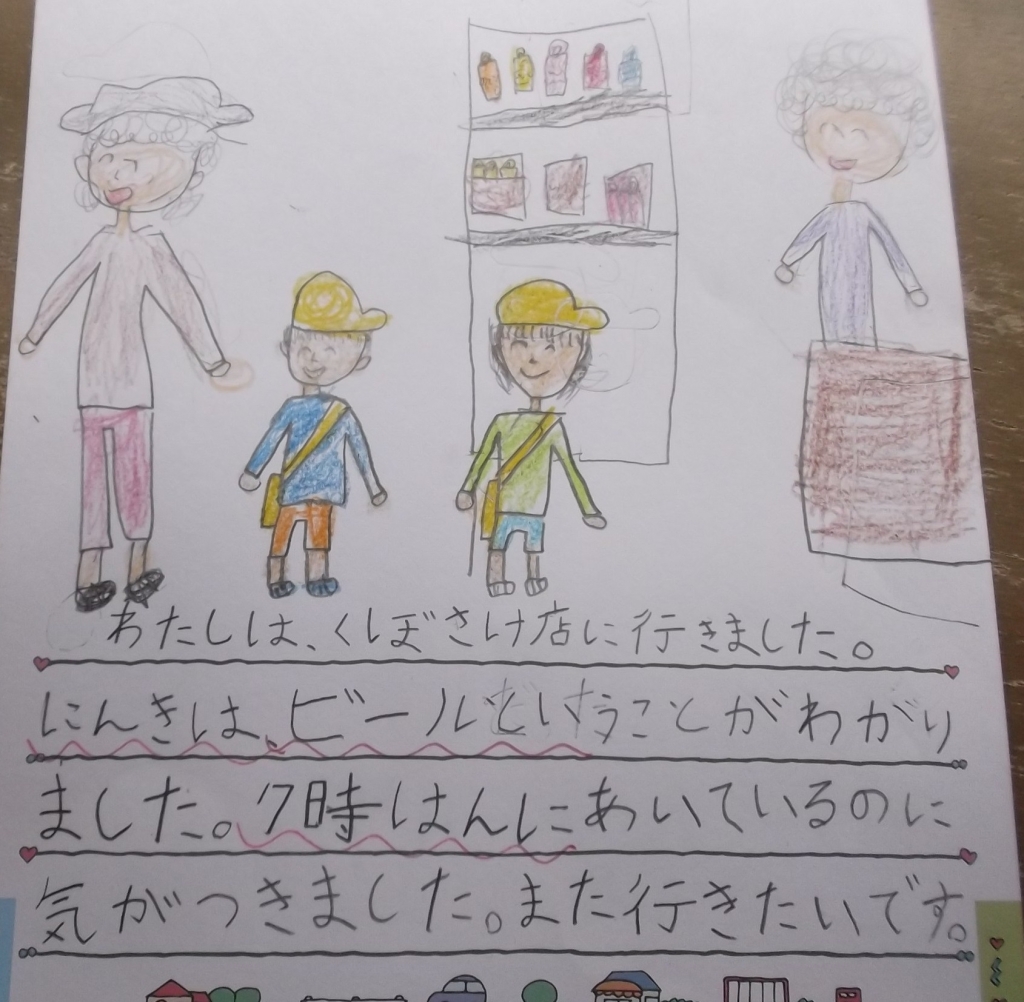 わたしは、くしぼさけ店に行きました。
にんきは、ビールということがわかり
ました。7時はんにあいているのに
気がつきました。また行きたいです。